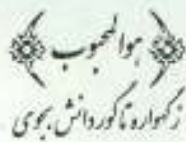 هوالمحبوب
ز گهواره تا گور دانش بجوی